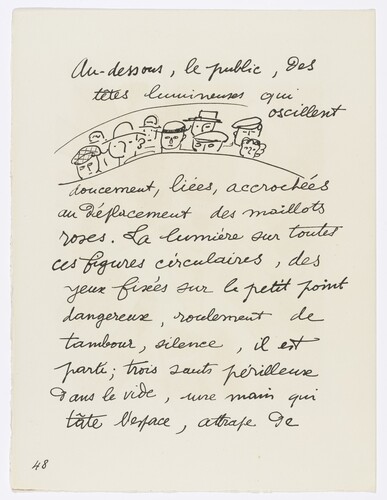 Au-dessous, le public, des
têtes lumineuses qui
oscillent
doucement, liées, accrochées
au déplacement des maillots
roses. La lumière sur toutes
ces figures circulaires, des
yeux fixés sur le petit point
dangereux, roulement de
tambour, silence, il est
parti ; trois sauts périlleux
dans le vide, une main qui
tâte l'espace, attrape de
48